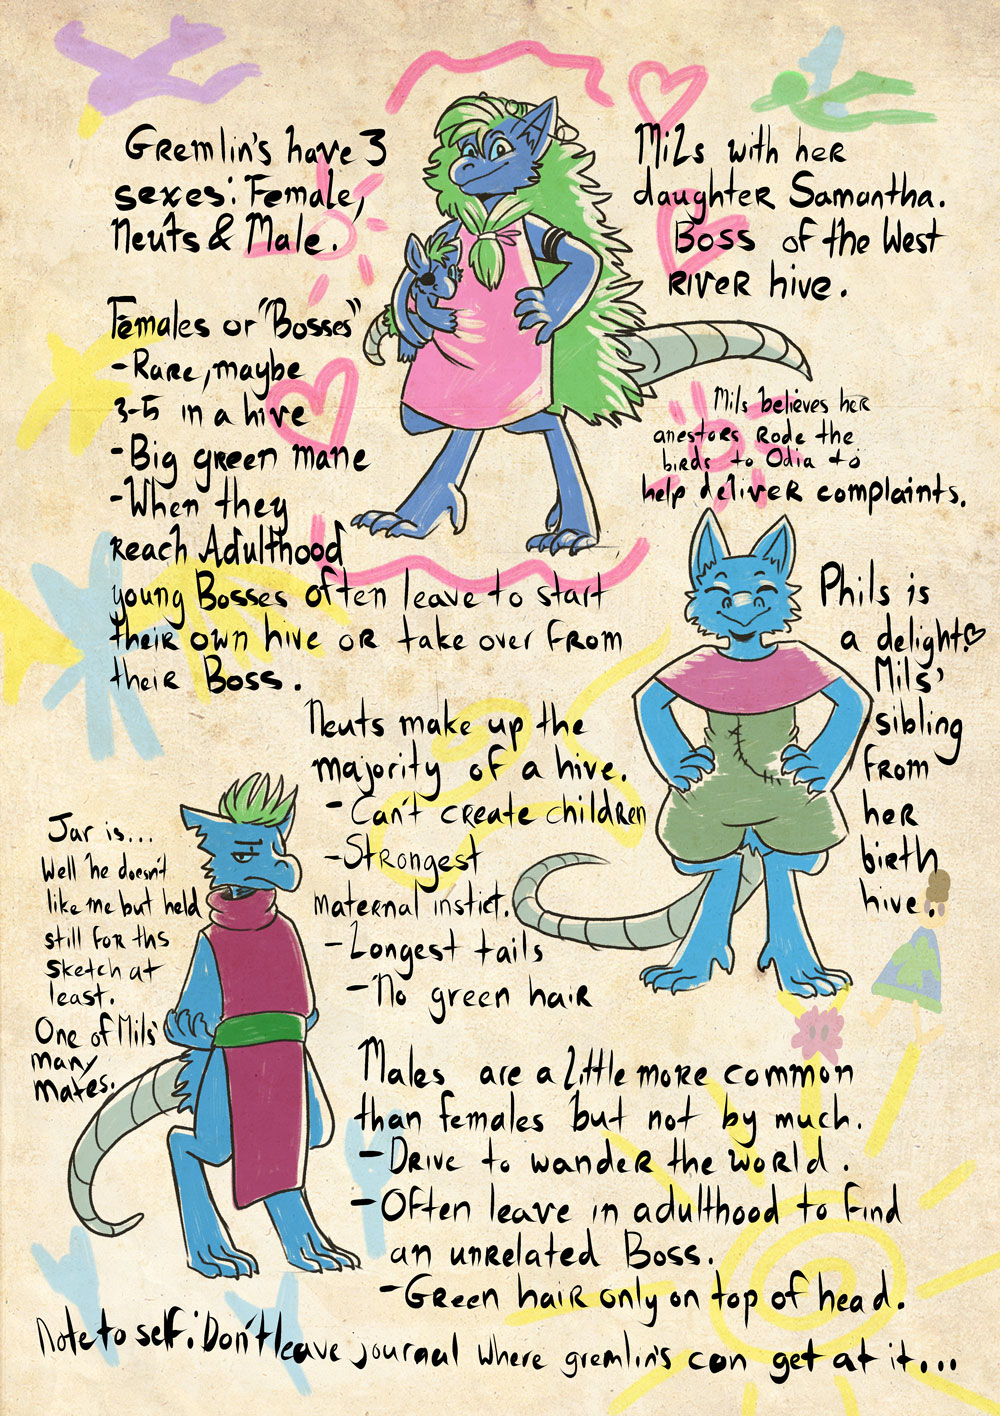 Gremlin's have 3
sexes: Female,
Neuts & Male.
Mils with her
daughter Samantha.
Boss of the West
River hive.
Females or "Bosses"
-Rare, maybe
3-5 in a hive
-Big green mane
-When they
reach Adulthood
young Bosses often leave to start
their own hive or take over from
their Boss.
Mils believes her
anestors rode the
birds to Odia to
help deliver complaints.
Phils is
a delight!♡
Mils'
sibling
from
her
birth
hive.
Neuts make up the
majority of a hive.
- Can't create children
-Strongest
maternal instict.
-Longest tails
-No green hair
Jar is...
Well he doesn't
like me but held
still for ths
sketch at
least.
One of Mils'
many
mates.
Males are a little more common
than females but not by much.
-Drive to wander the world.
-Often leave in adulthood to find
an unrelated Boss.
-Green hair only on top of head.
Note to self: Don't leave journal where gremlin's can get at it...